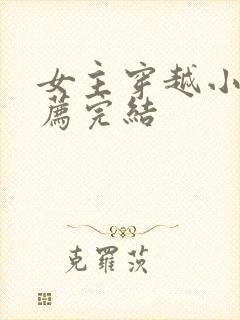 女主穿越小
薦完結
克羅茨